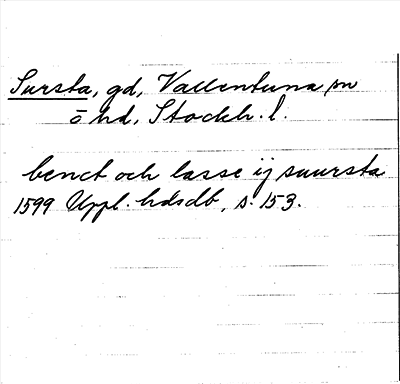 Sursta, gd, Vallentuna sn
o hd, Stockh. l.
benct och lasse ij suursta
1599 Uppl. hdsdb, s. 153.